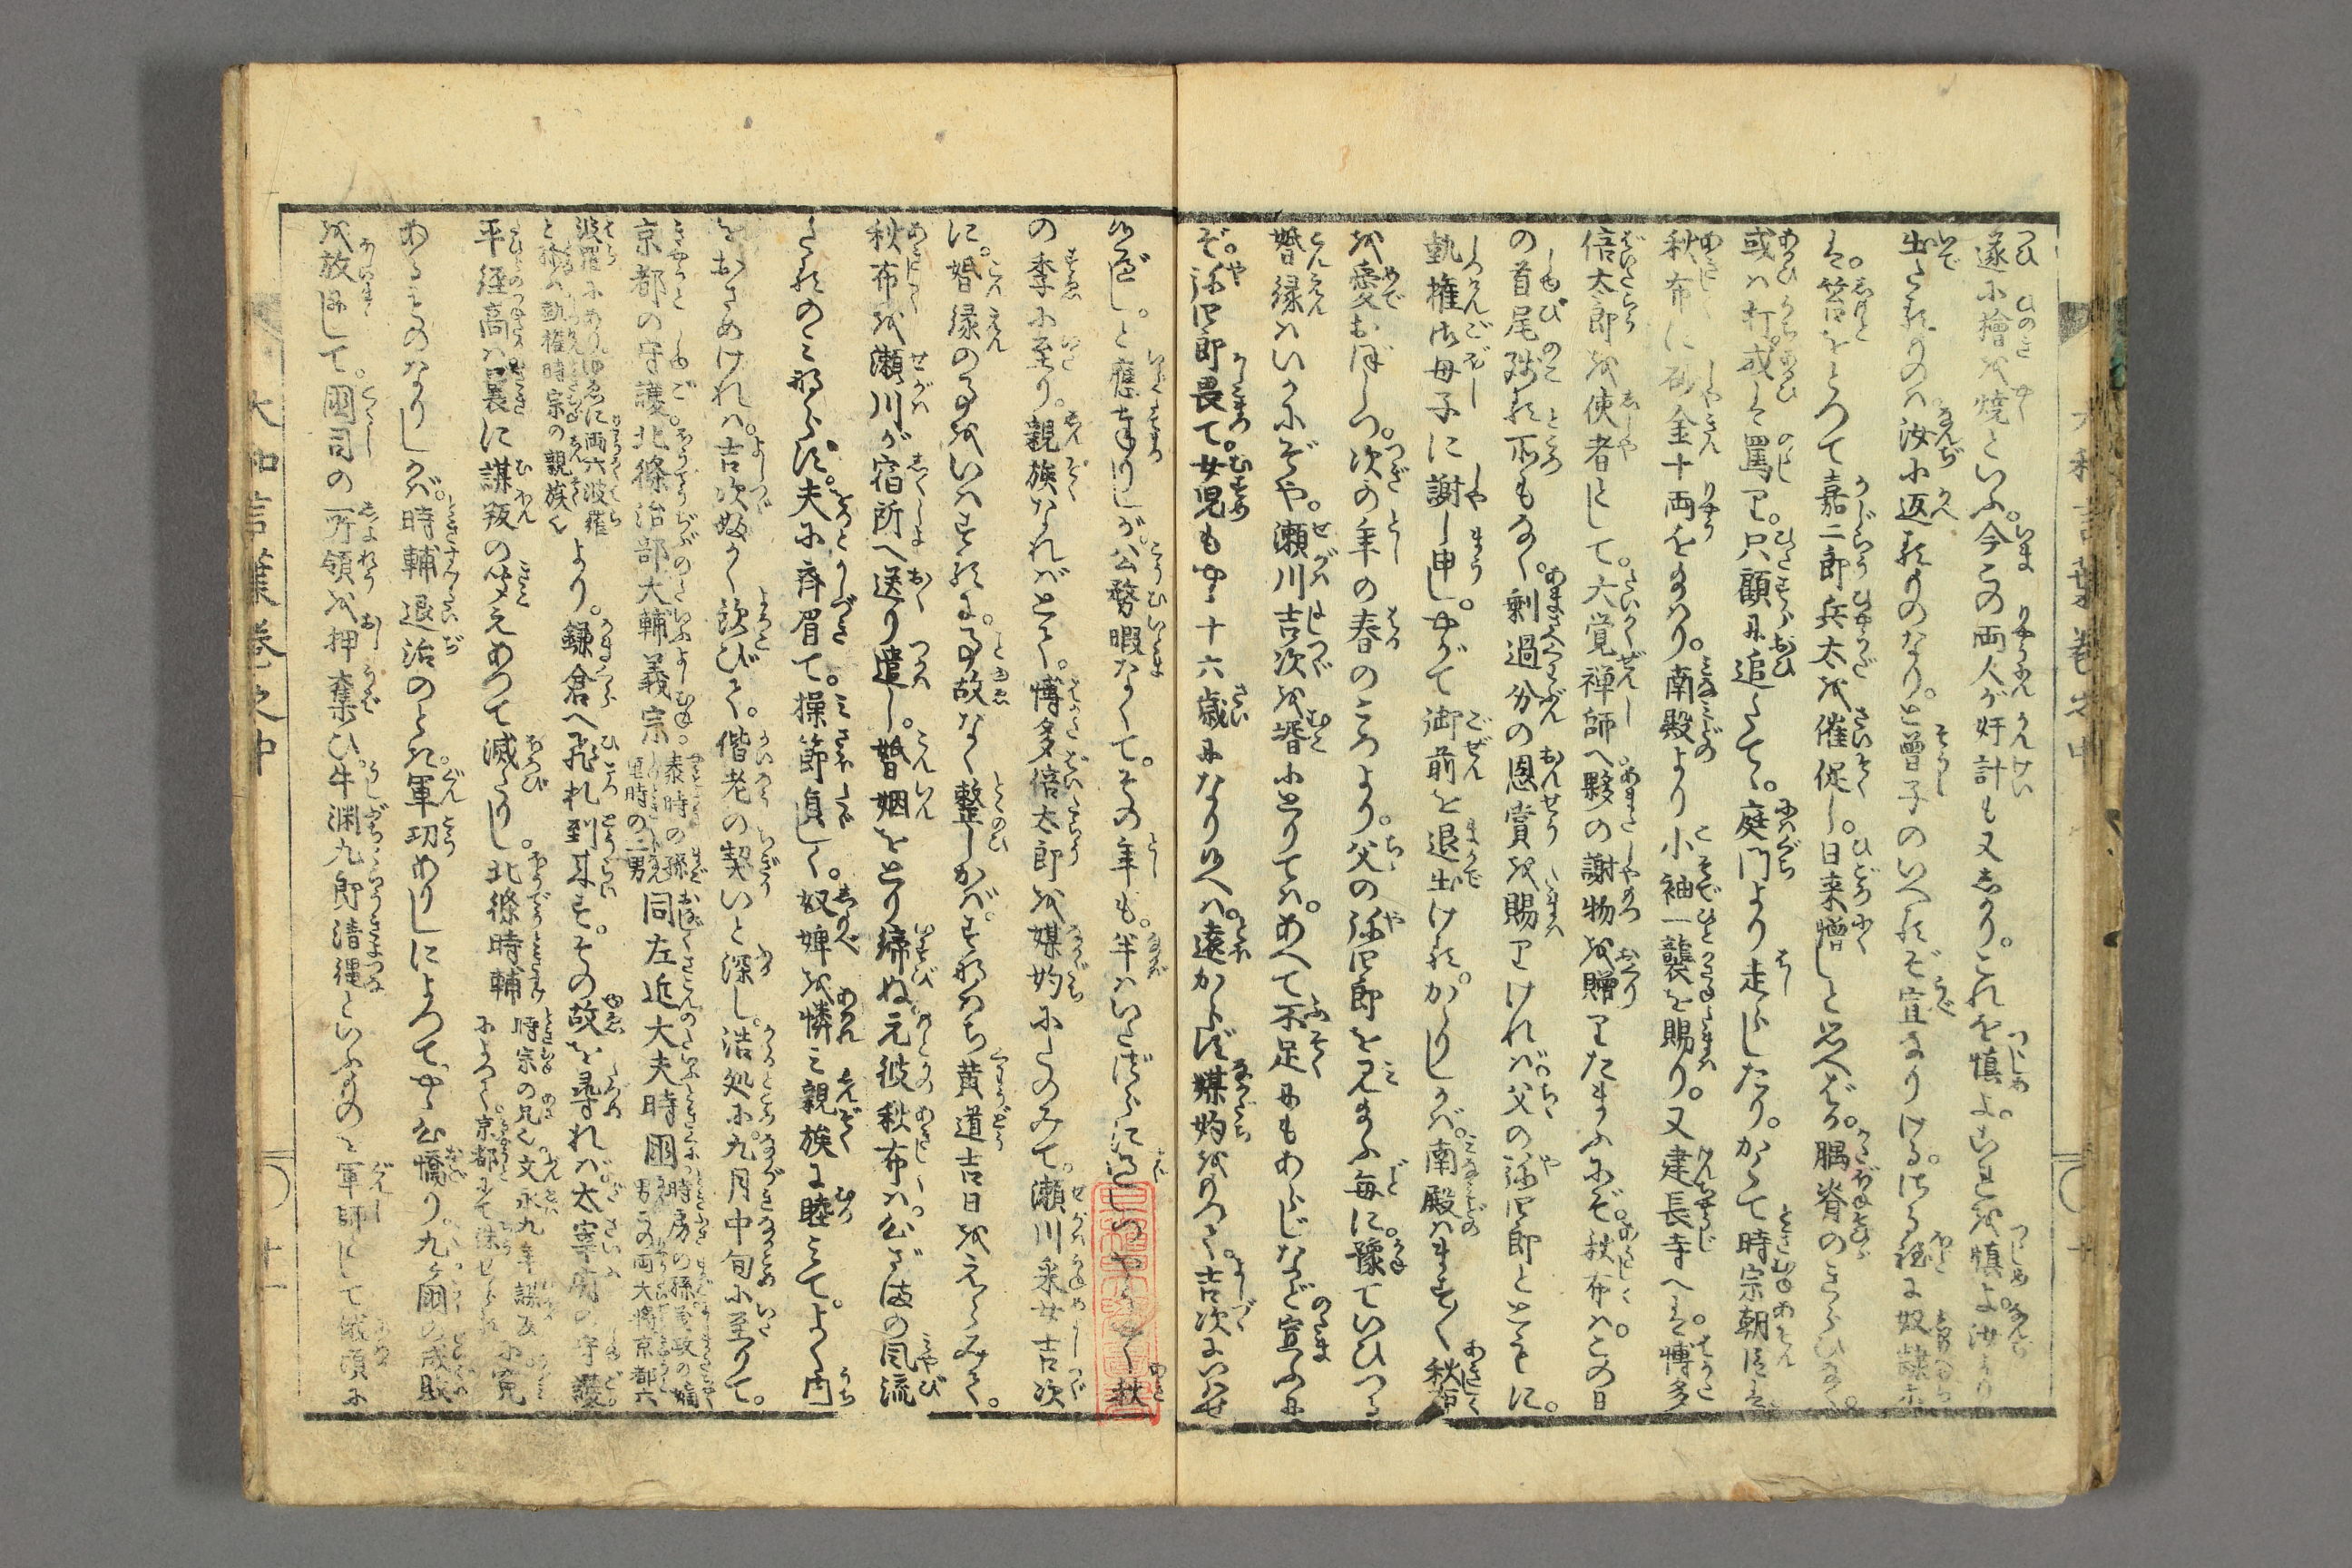 遂に檜を焼といふ。今この両人が奸計も又しかり。これを慎よ。これを慎よ。汝より
出たるものは汝に返るものなり。と曽子のいへるぞ宜なりける。
は。笞をとつて嘉二郎兵太を催促し。日来憎しと思へば。腢脊のきらひなく。
或は打。或は罵り。只顧に追たて。庭門より走らしたり。かくて時宗朝臣は。
秋布に砂金十両をたまはり。南殿より小袖一襲を賜り。又建長寺へは。博多
倍太郎を使者として。大覚禅師へ夥の謝物を贈りたまふにぞ。秋布は。この日
の首尾残る所もなく。剰過分の恩賞を賜りければ。父の弥四郎とともに。
執権御母子に謝し申し。やがて御前を退出ける。かゝりしかば。南殿はます〳〵秋布
を愛おぼしつ。次の年の春のころより。父の弥四郎を見たまふ毎に。豫ていひつる
婚縁はいかにぞや。瀬川吉次を壻にとりては。あへて不足にもあらじなど宣ふにぞ。
弥四郎畏て。女児もやゝ十六歳になり候へば。遠からず媒妁をもつて。吉次にいはせ
候べし。と應まうせしが。公務暇なくて。その年も。半はいたづらに過しつやゝ秋
の季に至り。親族なればとて。博多倍太郎を媒妁にたのみて。瀬川采女吉次
に。婚縁の事をいはするに。事故なく整しかば。すなはち黄道吉日をえらみて。
秋布を瀬川が宿所へ送り遣し。婚姻をとり締ぬ。元彼秋布は。心ざまの風流
たるのみならず。夫に斉眉て。操節貞しく。奴婢を憐み親族に睦みて。よく内
をおさめければ。吉次妙く歓びて。偕老の契いと深し。浩処に。九月中旬に至りて。
京都の守護北條治部大輔義宗泰時の孫重時の二男同左近大夫時國時房の孫時政の嫡男この両大将京都六
波羅にありゆゑに両六波羅と称ふ執権時宗の親族也より。鎌倉へ飛札到来す。その故を尋れば。太宰府の守護
平経高は。嚢に謀叛の聞えあつて滅たりし。北條時輔時宗の兄也文永九年謀反によつて京都にて誅せらるに宛
あるものなりしが。時輔退治のとき。軍功ありしによつて。やゝ心憍り。九ヶ國の成敗
を放にして。國司の所領を押奪ひ。牛淵九郎清縄といふものを軍師として頃に
大和言葉巻之中
大和言葉巻之中
十一